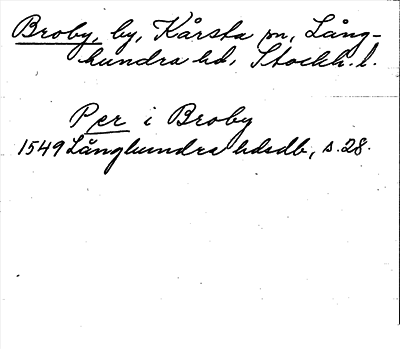 Broby, by, Kårsta sn, Lång-
hundra hd, Stockh. l.
Per i Broby
1549 Långhundra hdsdb, s. 28.